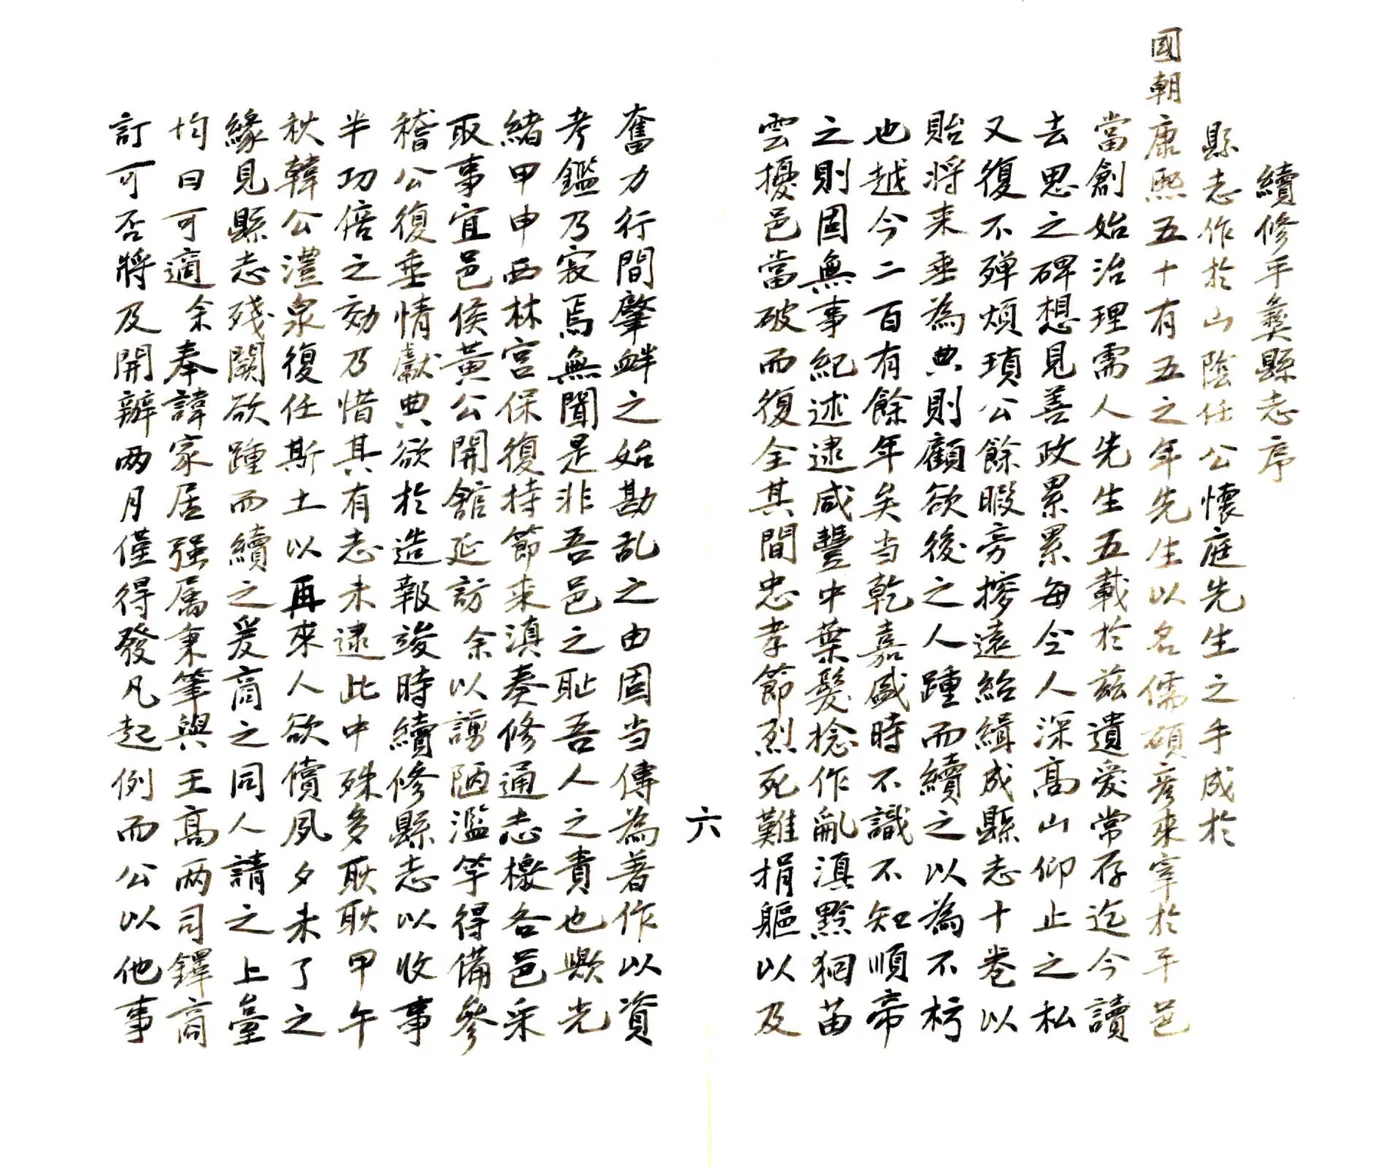 續修平彝縣志序
縣志作於山陰任公懷庭先生之手成於
國朝康熙五十有五之年先生以名儒碩彥來宰於平邑
當創始治理需人先生五載於茲遺爱常存迄今讀
去思之碑想見善政累累每令人深高山仰止之私
又復不殫煩瑣公餘暇旁搜遠紹緝成縣志十卷以
貽将来垂為典則顧欲後之人踵而續之以為不朽
也越今二百有餘年矣当乾嘉盛時不識不知順帝
之則固無事紀述逮咸豐中葉髮捻作亂滇黔狪苗
雲擾邑當破而復全其間忠孝節烈死難捐軀以及
六
奮力行間肇衅之始勘乱之由固当傳為著作以資
考鑑乃寂焉無聞是非吾邑之恥吾人之責也歟光
緒甲申西林宫保復持節来滇奏修通志檄各邑采
取事宜邑侯黃公開館延訪余以謭陋濫竽得備參
稽公復垂情獻典欲於造報竣時續修縣志以收事
半功倍之効乃惜其有志未逮此中殊多耿耿甲午
秋韓公澧泉復任斯土以再來人欲償夙夕未了之
緣見縣志殘闕欲踵而續之爰商之同人請之上臺
均曰可適余奉諱家居强属秉筆與王高两司鐸商
訂可否將及開辦两月僅得發凡起例而公以他事